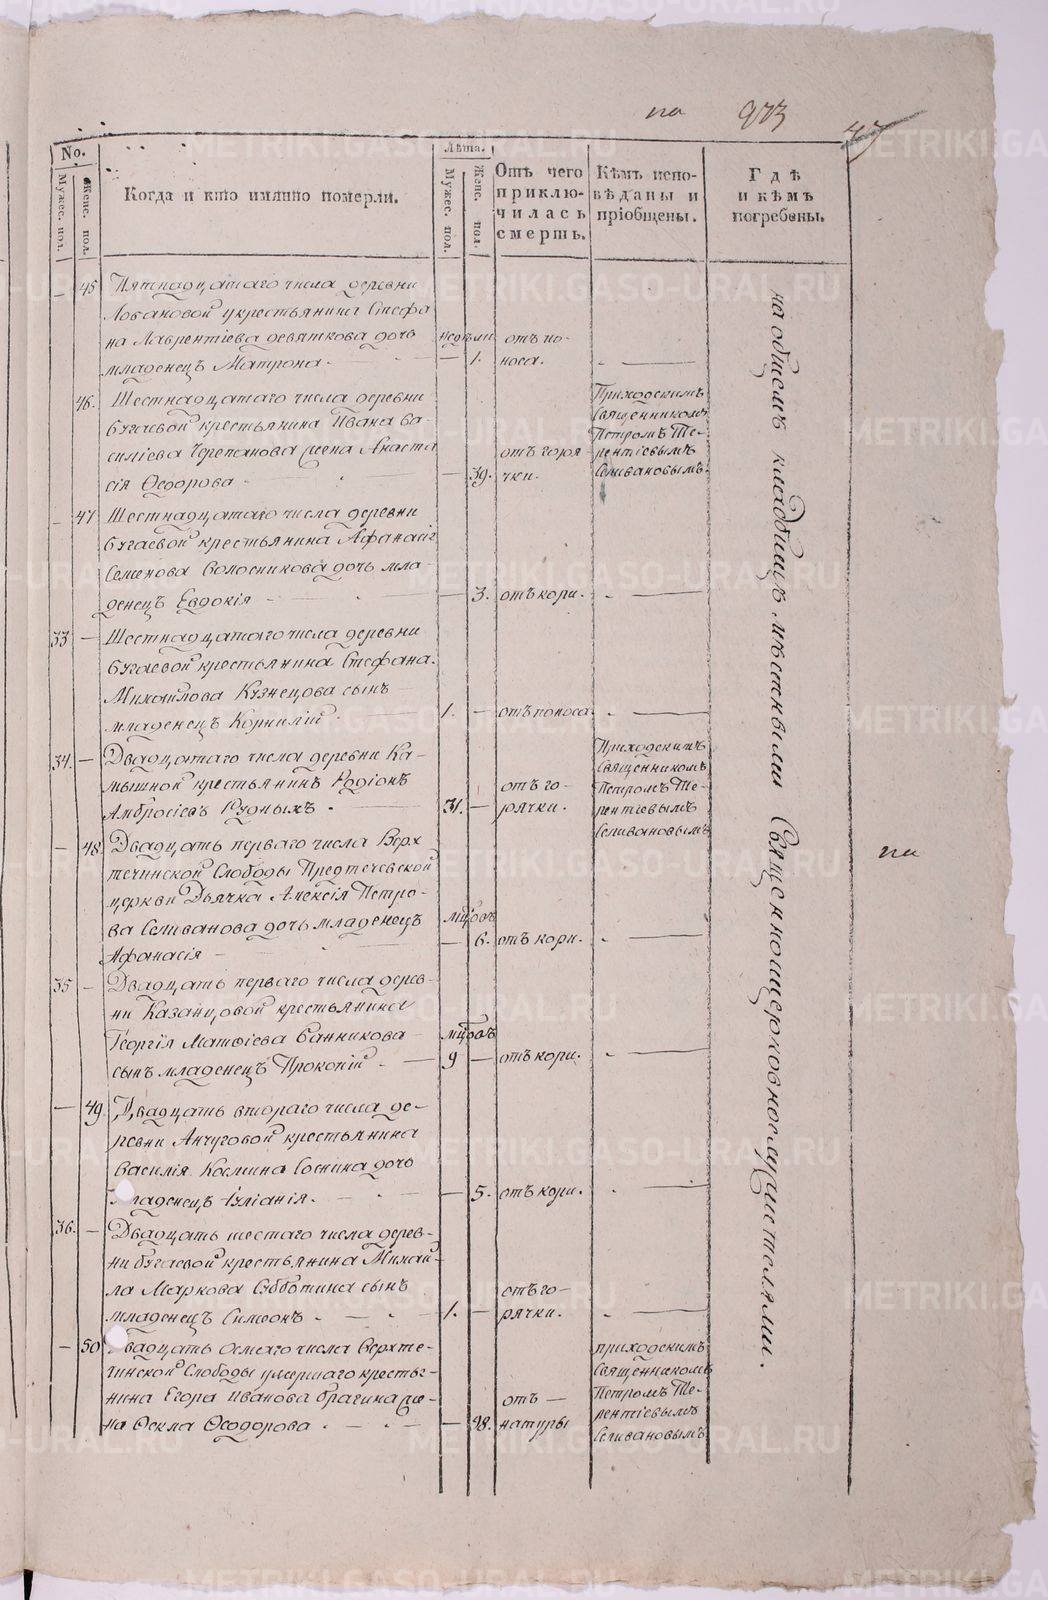 на 973
47
No.
Мужес. пол.
Женс. пол.
Когда и кто имянно померли.
Лѣта.
Мужес. пол.
Женс. пол.
Отъ чего
приклю-
чилась
смерть.
Кѣмъ испо-
вѣданы и
пріобщены.
Гдѣ
и кѣмъ
погребены.
— 45 Пятнадцатаго числа деревни
Лобановой у крестьянина Стефа
на Лаврентіева Девяткова дочь
младенецъ Матрона —
недѣли
— 1.
отъ по-
носа.
46. Шестнадцатаго числа деревни
Бугаевой крестьянина Ивана Ва-
силіева Черепанова жена Анаста
сія Ѳедорова —
— 39.
отъ горя
чки.
Приходскимъ
Священникомъ
Петромъ Те-
рентіевымъ
Селивановымъ.
— 47 Шестнадцатаго числа деревни
Бугаевой крестьянина Афанасія
Семенова Колосникова дочь мла-
денецъ Евдокія —
— 3. отъ кори. —
33 — Шестнадцатаго числа деревни
Бугаевой крестьянина Стефана
Михайлова Кузнецова сынъ
младенецъ Корнилій —
1. — отъ поноса —
34. — Двадцатаго числа деревни Ка-
мышной крестьянинъ Родіонъ
Амбросіевъ Рудныхъ.
31. —
отъ го-
рячки.
Приходскимъ
Священникомъ
Петромъ Те-
рентіевымъ
Селивановымъ
— 48. Двадцать перваго числа Верх
течинской Слободы Предтечевской
церкви Дьячка Алексія Петро-
ва Селиванова дочь младенецъ
Афанасія —
мцовъ
— 6. отъ кори. —
35 — Двадцать перваго числа дерев-
ни Казанцовой крестьянина
Георгія Матѳіева Банникова
сынъ младенецъ Прокопій —
мцовъ
9 — отъ кори. —
— 49. Двадцать втораго числа де-
ревни Анчуговой крестьянина
Василія Космина Соснина дочь
младенецъ Іуліанія. —
— 5. отъ кори. —
36. — Двадцать шестаго числа дерев-
ни Бугаевой крестьянина Михай-
ла Маркова Субботина сынъ
младенецъ Симеонъ. —
1. —
отъ го-
рячки. —
— 50 Двадцать осмаго числа Верхте-
чинской Слободы умершаго крестья-
нина Егора Иванова Брагина же-
на Ѳекла Ѳеодорова —
— 98.
отъ —
натуры
приходскимъ
Священникомъ
Петромъ Те-
рентіевымъ
Селивановымъ
на общемъ кладбищѣ мѣстными Священноцерковнослужителями.
на
METRIKI.GASO-URAL.RU